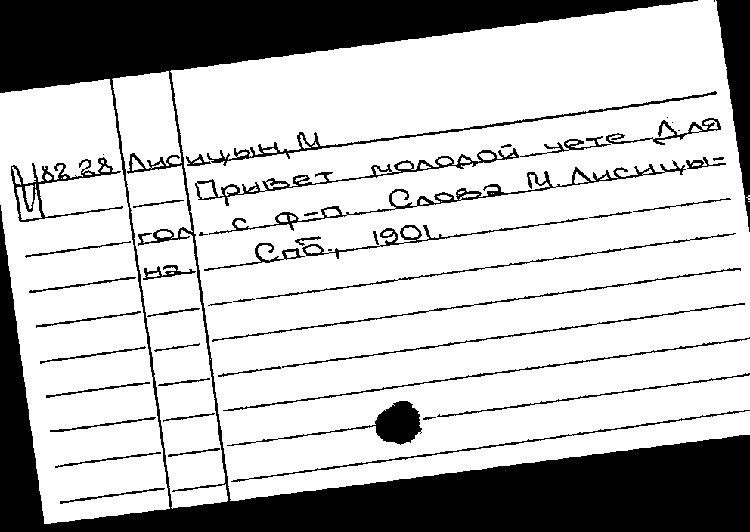 8228 Лисицын, М
Привет молодой чете Для
гол. с ф=п. Слова М. Лисицы=
на. Спб., 1901.